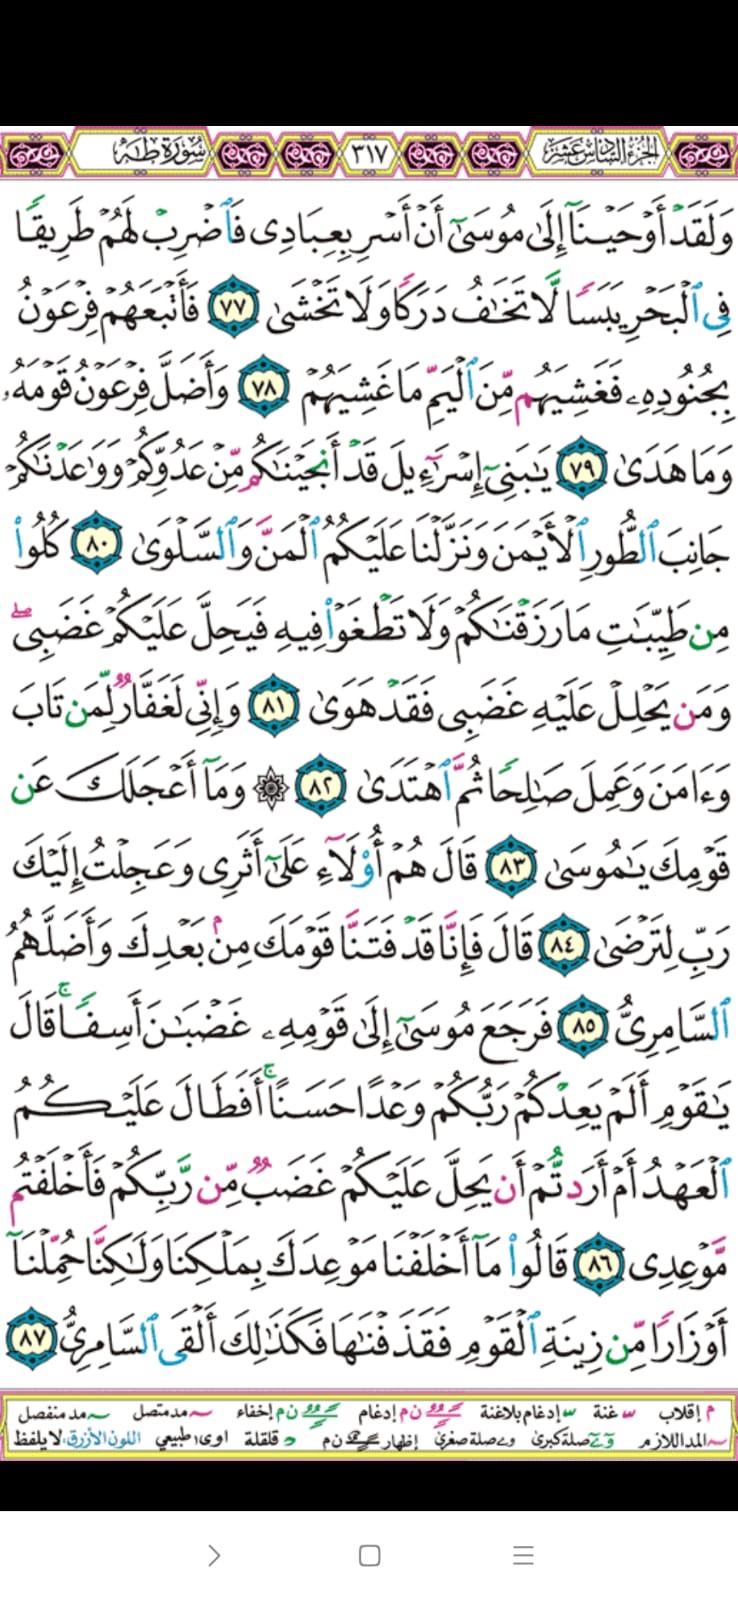 الجزء السادس عشر ٣١٧ سورة طه
وَلَقَدْ أَوْحَيْنَآ إِلَىٰ مُوسَىٰٓ أَنْ أَسْرِ بِعِبَادِى فَٱضْرِبْ لَهُمْ طَرِيقًا
فِى ٱلْبَحْرِ يَبَسًا لَّا تَخَٰفُ دَرَكًا وَلَا تَخْشَىٰ ٧٧ فَأَتْبَعَهُمْ فِرْعَوْنُ
بِجُنُودِهِۦ فَغَشِيَهُم مِّنَ ٱلْيَمِّ مَا غَشِيَهُمْ ٧٨ وَأَضَلَّ فِرْعَوْنُ قَوْمَهُۥ
وَمَا هَدَىٰ ٧٩ يَٰبَنِىٓ إِسْرَٰٓءِيلَ قَدْ أَنجَيْنَٰكُم مِّنْ عَدُوِّكُمْ وَوَٰعَدْنَٰكُمْ
جَانِبَ ٱلطُّورِ ٱلْأَيْمَنَ وَنَزَّلْنَا عَلَيْكُمُ ٱلْمَنَّ وَٱلسَّلْوَىٰ ٨٠ كُلُوا۟
مِن طَيِّبَٰتِ مَا رَزَقْنَٰكُمْ وَلَا تَطْغَوْا۟ فِيهِ فَيَحِلَّ عَلَيْكُمْ غَضَبِى ۖ
وَمَن يَحْلِلْ عَلَيْهِ غَضَبِى فَقَدْ هَوَىٰ ٨١ وَإِنِّى لَغَفَّارٌ لِّمَن تَابَ
وَءَامَنَ وَعَمِلَ صَٰلِحًا ثُمَّ ٱهْتَدَىٰ ٨٢ ۞ وَمَآ أَعْجَلَكَ عَن
قَوْمِكَ يَٰمُوسَىٰ ٨٣ قَالَ هُمْ أُو۟لَآءِ عَلَىٰٓ أَثَرِى وَعَجِلْتُ إِلَيْكَ
رَبِّ لِتَرْضَىٰ ٨٤ قَالَ فَإِنَّا قَدْ فَتَنَّا قَوْمَكَ مِنۢ بَعْدِكَ وَأَضَلَّهُمُ
ٱلسَّامِرِىُّ ٨٥ فَرَجَعَ مُوسَىٰٓ إِلَىٰ قَوْمِهِۦ غَضْبَٰنَ أَسِفًا ۚ قَالَ
يَٰقَوْمِ أَلَمْ يَعِدْكُمْ رَبُّكُمْ وَعْدًا حَسَنًا ۚ أَفَطَالَ عَلَيْكُمُ
ٱلْعَهْدُ أَمْ أَرَدتُّمْ أَن يَحِلَّ عَلَيْكُمْ غَضَبٌ مِّن رَّبِّكُمْ فَأَخْلَفْتُم
مَّوْعِدِى ٨٦ قَالُوا۟ مَآ أَخْلَفْنَا مَوْعِدَكَ بِمَلْكِنَا وَلَٰكِنَّا حُمِّلْنَآ
أَوْزَارًا مِّن زِينَةِ ٱلْقَوْمِ فَقَذَفْنَٰهَا فَكَذَٰلِكَ أَلْقَى ٱلسَّامِرِىُّ ٨٧
م إقلاب غنة إدغام بلاغنة ن م إدغام ن م إخفاء مد متصل مد منفصل
المد اللازم صلة كبرى صلة صغرى إظهار ن م قلقلة اوى طبيعي اللون الأزرق لا يلفظ